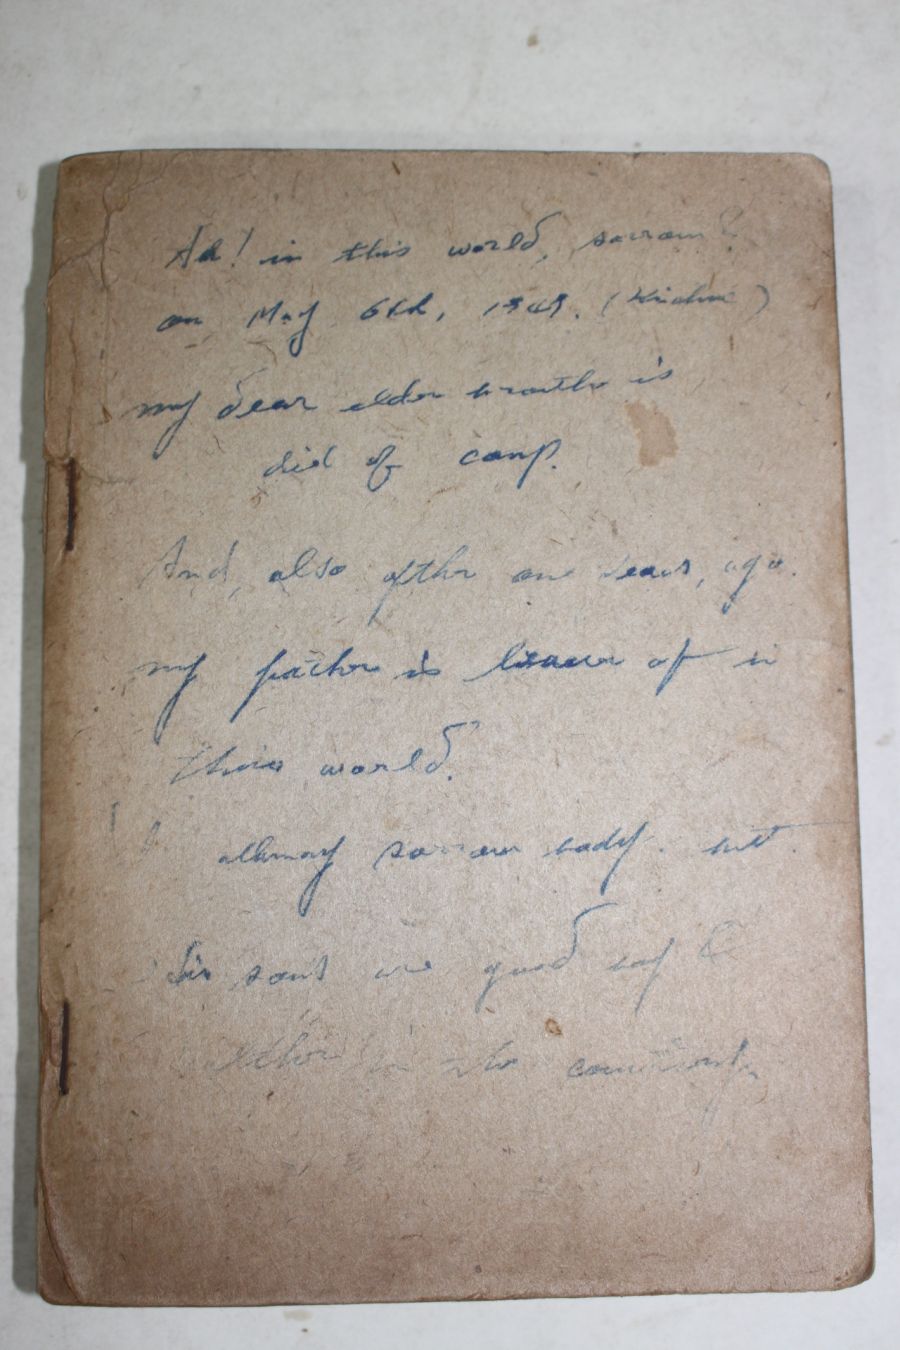 Ah! in this world, sorrow?
on May 6th, 1949. (
my dear elder brouthr is
did of camp.
And, also afthr one years, ago.
my fathr is leaver of in
this world.
allmay sorrow body. but.
sons are good boy
in the country.